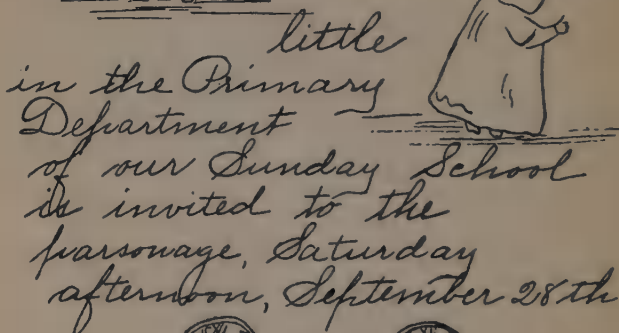 little
in the Primary
Department
of our Sunday School
is invited to the
parsonage, Saturday
afternoon, September 28th